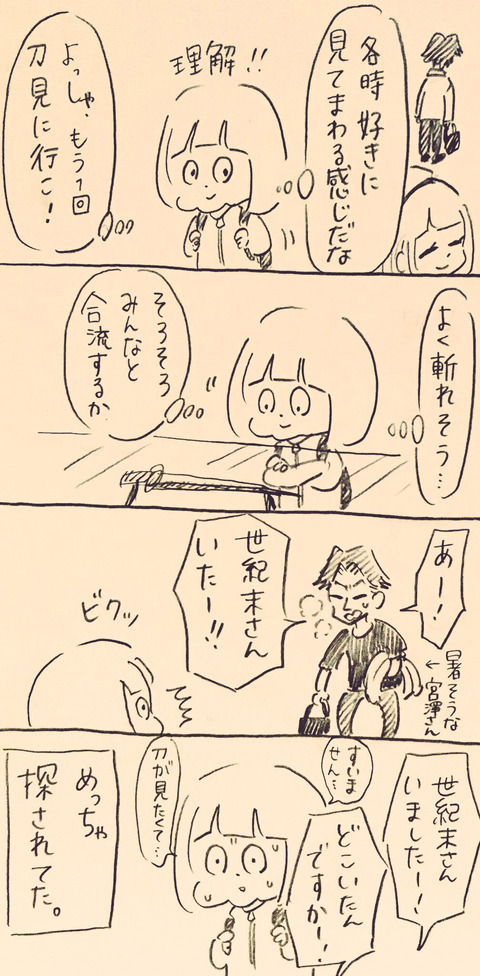 各時 好きに
見てまわる感じだな
理解!!
よっしゃ、もう1回
刀見に行こ!
よく斬れそう…
そろそろ
みんなと
合流するか
あー!
暑そうな
←宮澤さん
世紀末さん
いたー!!
ビクッ
世紀末さん
いましたー!
すいま
せん…
どこいたん
ですかー!
刀が見たくて…
めっちゃ
探されてた。